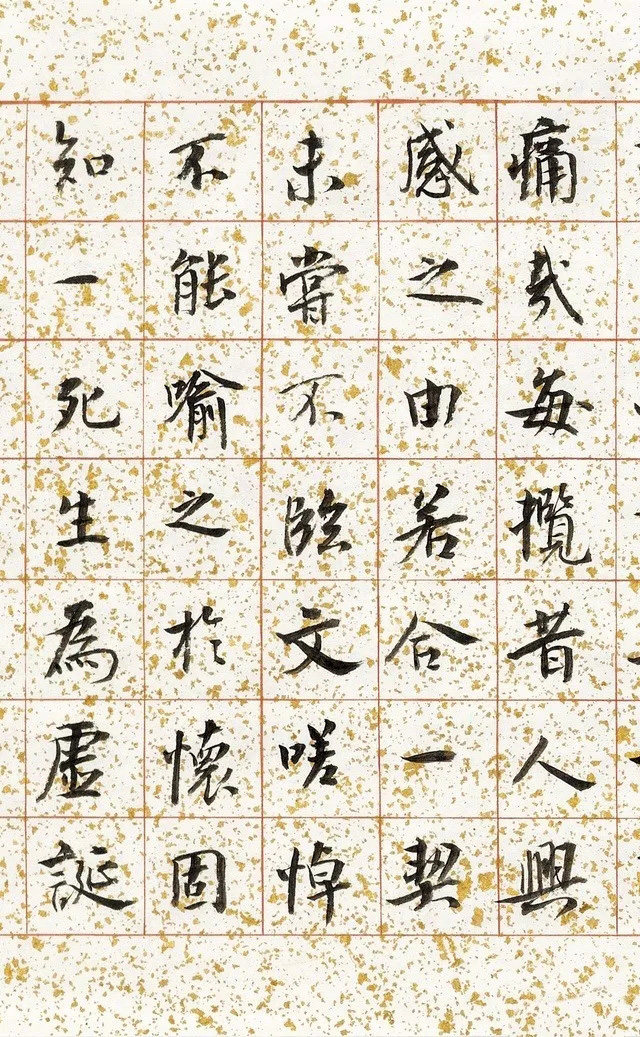 痛哉每攬昔人興
感之由若合一契
未嘗不臨文嗟悼
不能喻之於懷固
知一死生為虛誕